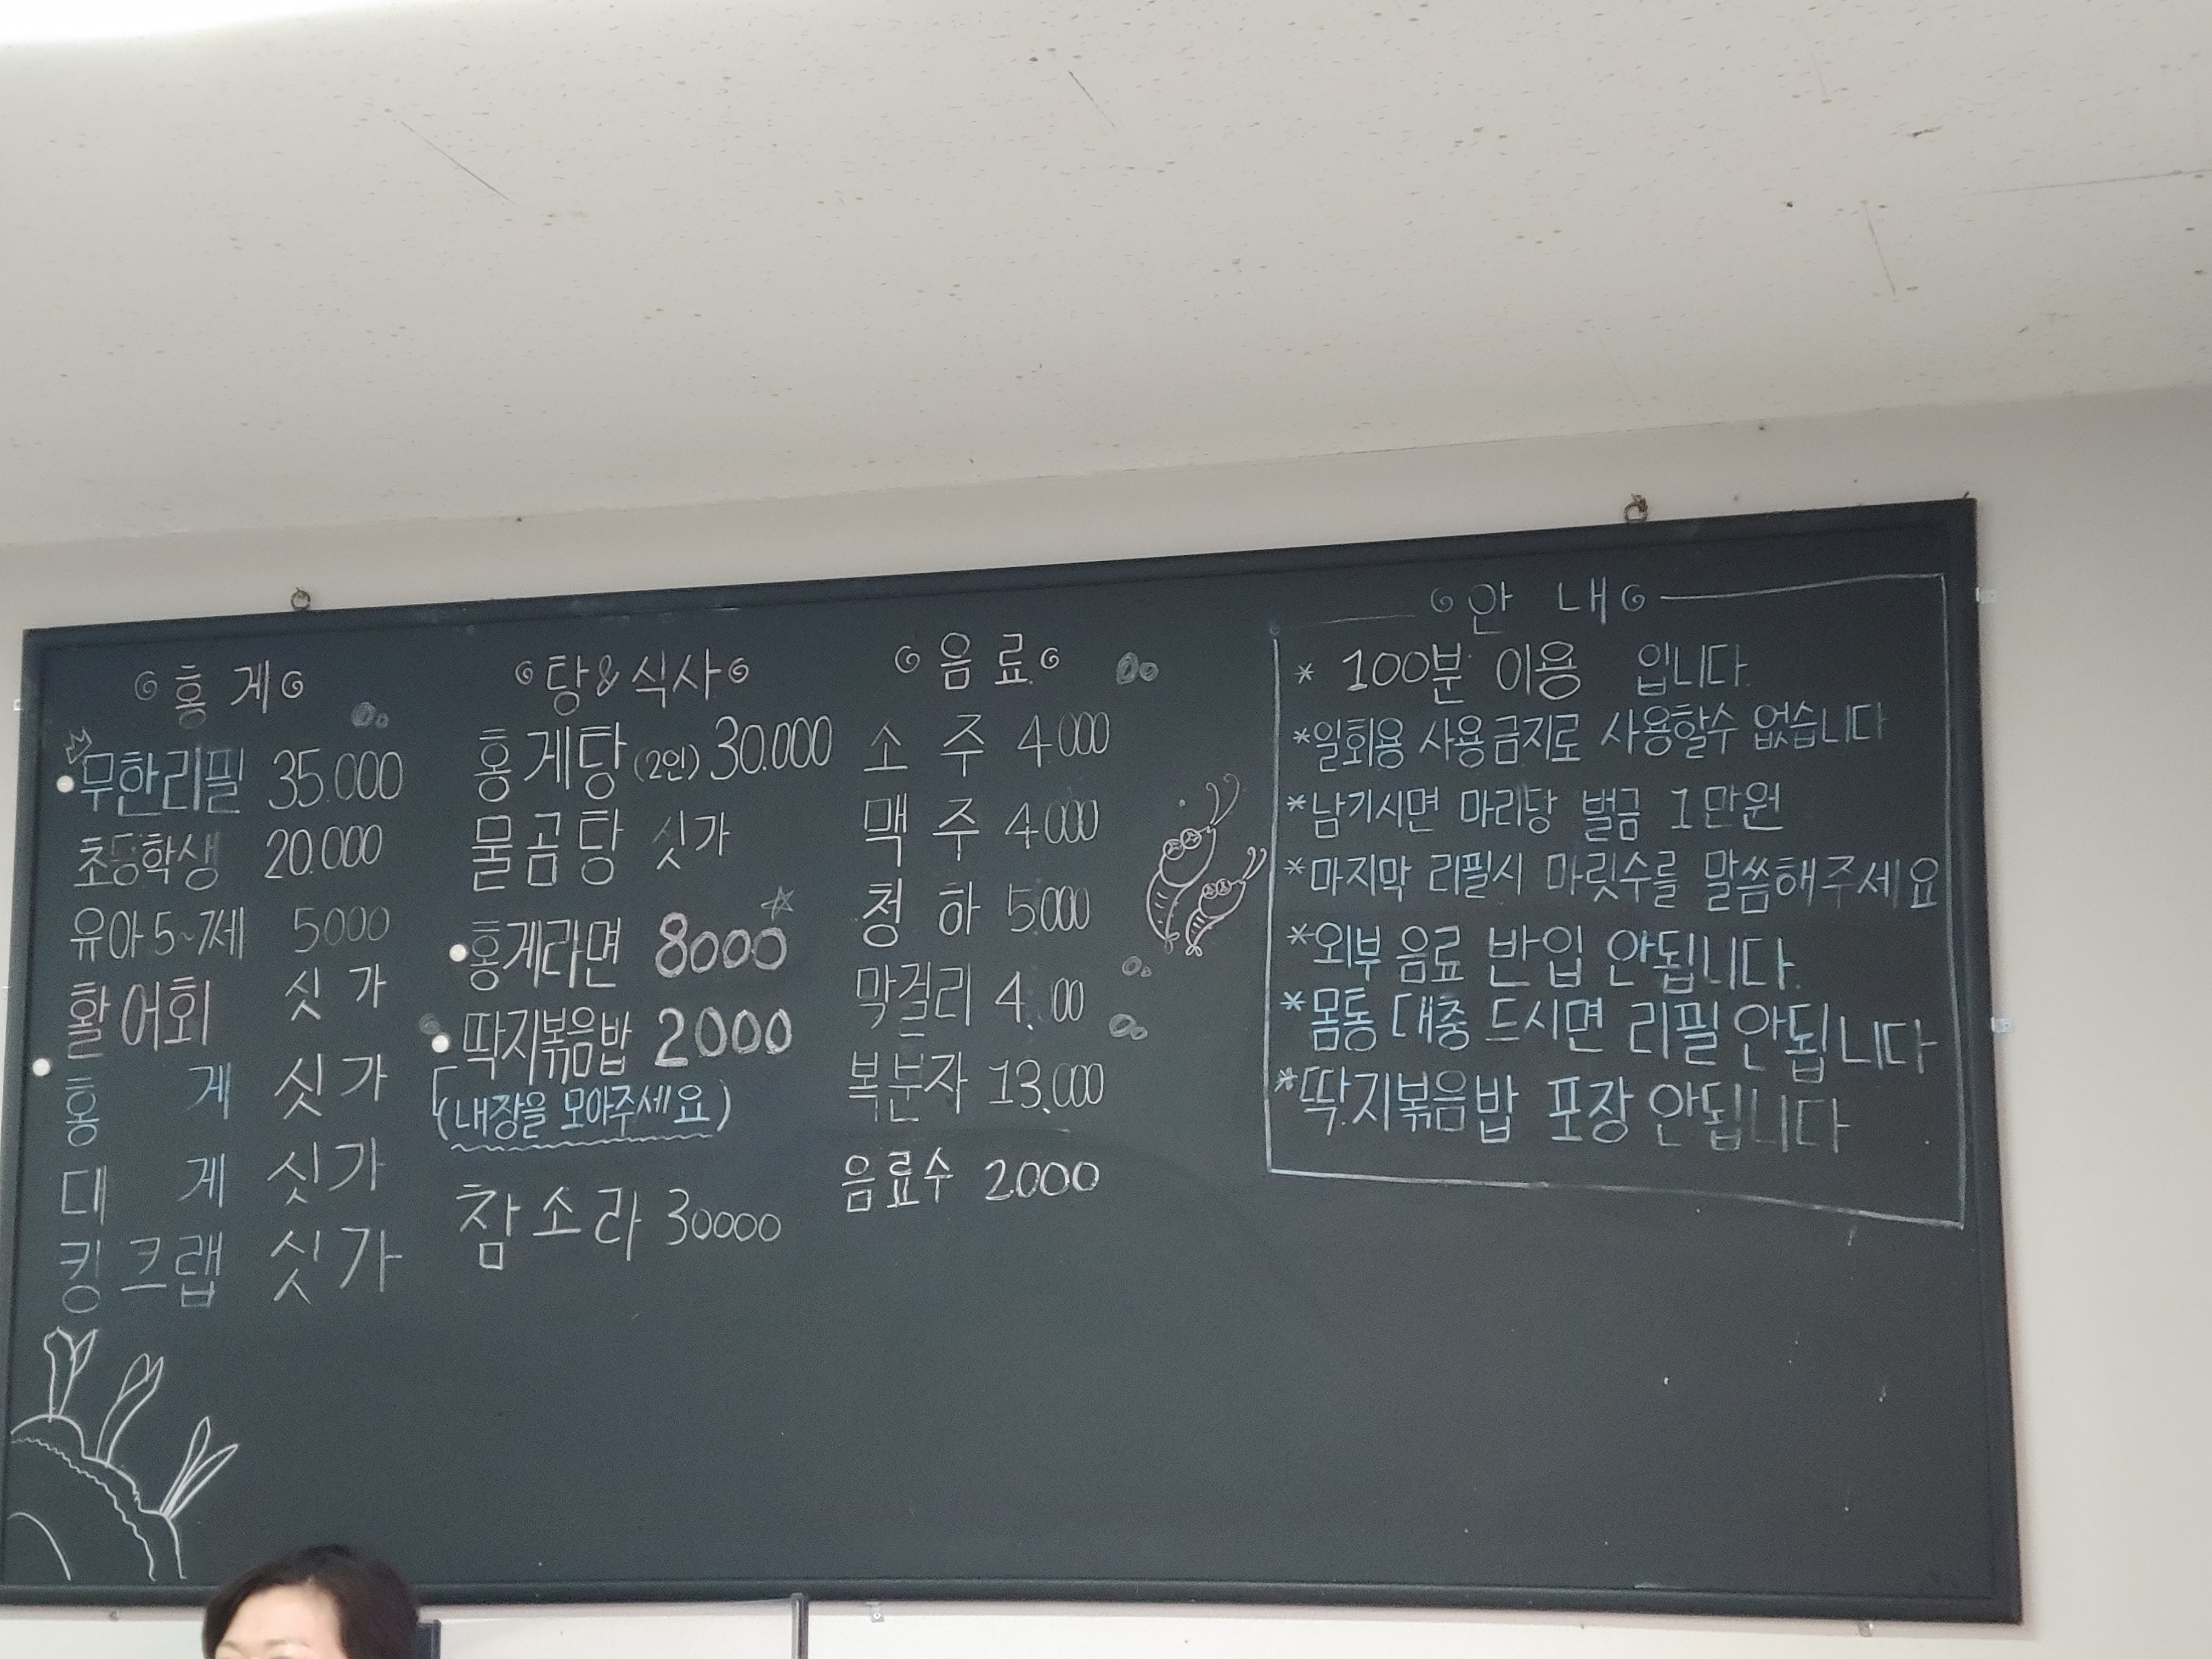 홍 게
무한리필 35.000
초등학생 20.000
유아 5~7세 5000
활어회 싯가
홍 게 싯가
대 게 싯가
킹크랩 싯가
탕&식사
홍게탕 (2인) 30.000
물곰탕 싯가
홍게라면 8000
딱지볶음밥 2000
(내장을 모아주세요)
참소라 30000
음료
소 주 4.000
맥 주 4.000
청 하 5.000
막걸리 4. 00
복분자 13.000
음료수 2000
안 내
* 100분 이용 입니다.
*일회용 사용금지로 사용할수 없습니다
*남기시면 마리당 벌금 1만원
*마지막 리필시 마릿수를 말씀해주세요
*외부 음료 반입 안됩니다.
*몸통 대충 드시면 리필 안됩니다
*딱지볶음밥 포장 안됩니다